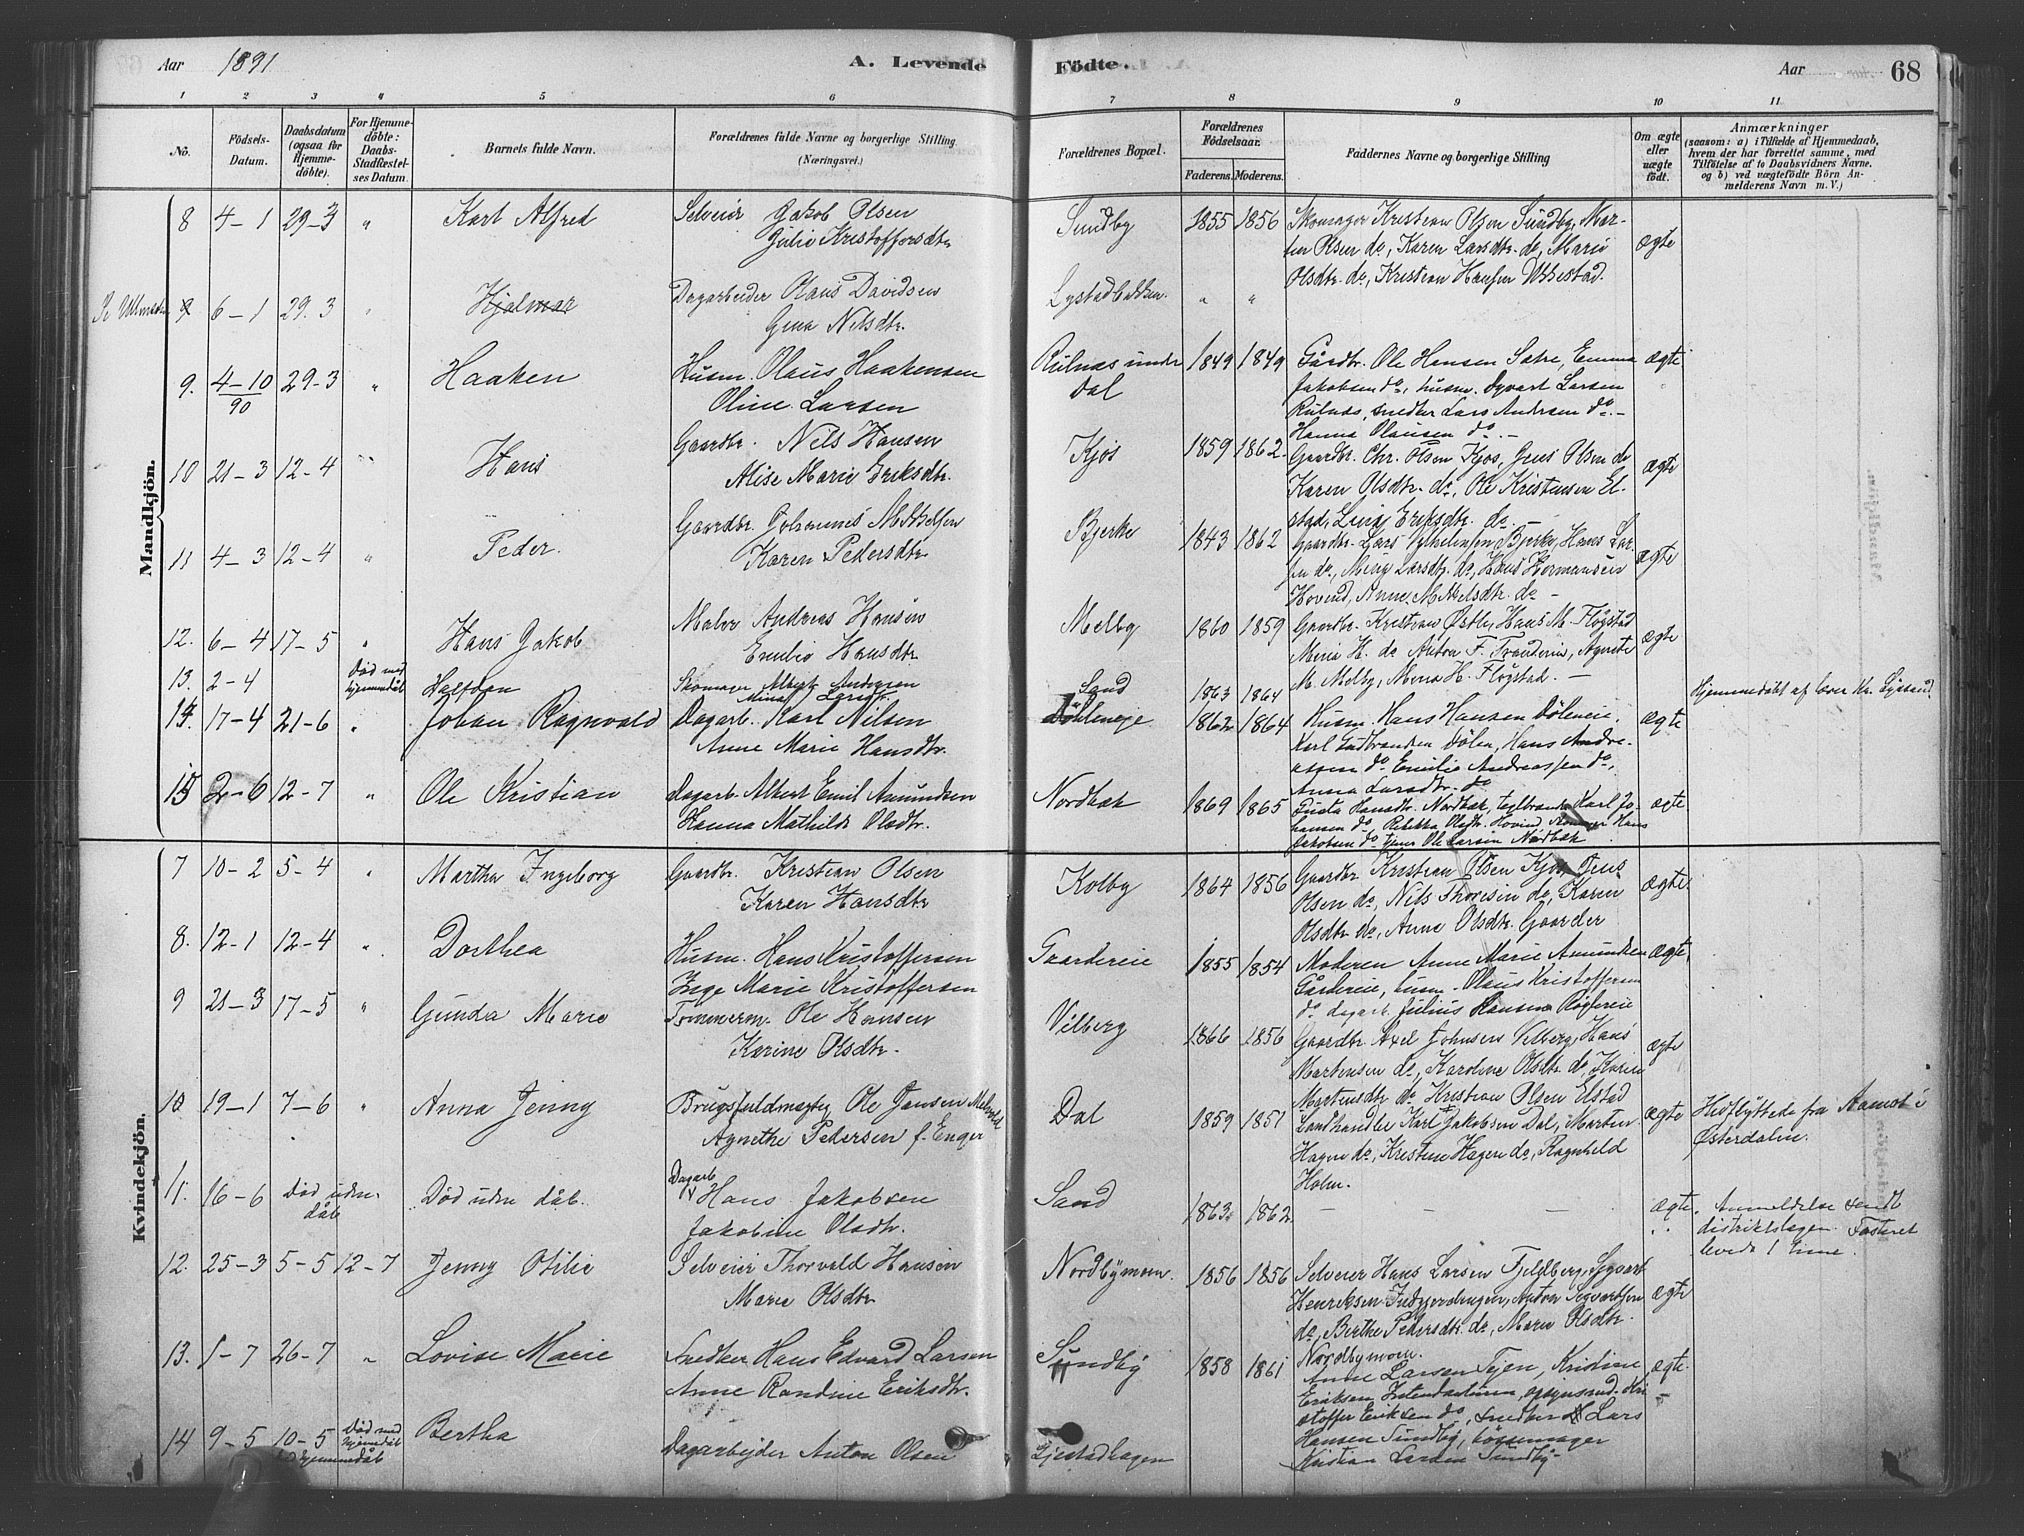 Aar 1891 A. Levende Födte. Aar 68
1 2 3 4 5 6 7 8 9 10 11
No.
Födsels-Datum.
Daabsdatum (ogsaa for Hjemme-döbte).
For Hjemme-döbte: Daabs-Stadfæstel-ses Datum.
Barnets fulde Navn.
Forældrenes fulde Navne og borgerlige Stilling (Næringsvei.)
Forældrenes Bopæl.
Forældrenes Födselsaar. Faderens. Moderens.
Faddernes Navne og borgerlige Stilling
Om ægte eller uægte födt.
Anmærkninger
(saasom: a) i Tilfælde af Hjemmedaab,
hvem der har forrettet samme, med
Tilföielse af to Daabsvidners Navne,
og b) ved uægtefödte Börn An-
melderens Navn m. V.)
Mandkjön.
8 4–1 29–3 " Karl Alfred Selveier Jakob Olsen Sundby 1855 1856 Skomager Kristian Olsen Sundby, Mar-
Julie Kristoffersdtr. tin Olsen do, Karen Larsdtr. do, Marie ægte
Olsdtr. do, Kristian Hansen
9 6–1 29.3 " Hjalmar Dagarbeider Olaus Davidsen Lystadbakken " "
Gina Nilsdtr.
9. 4–10/90 29–3 " Haaken Husm. Olaus Haakensen Rulnas under 1849 1849 Gårdbr. Ole Hansen Sætre, Emma ægte
Oline Larsen Dal Jakobsen do, husm. Syvart Larsen
Rulnas, snedker Lars Andersen do –
Hanna Olausen do –
10 21–3 12–4 " Hans Gaardbr. Nils Hansen Kjos 1859 1862 Gaardbr. Chr. Olsen Kjos, Jens Olsen do ægte
Alise Marie Eriksdtr. Karen Olsdtr. do, Ole Kristensen El-
stad, Lina Eriksdtr. do –
11 4–3 12–4 " Peder. Gaardbr. Johannes Bjerke 1843 1862 Gaardbr. Lars Bjerke, Hans Lar- ægte
Karen Pedersdtr. sen do, Larsdtr. do, Hans Hermansen
Hovind, Anne M. Nilsdtr. do –
12. 6–4 17–5 " Hans Jakob Maler Andreas Hansen Melby 1860 1859 Gaardbr. Kristian Hans M. Fløgstad ægte
Emilie Hansdtr. H. do Anton F. Agnete
M. Melby, H. Fløgstad. –
13. 2–4 Død med hjemmedåb Halfdan Skomager Albert Andersen Sand 1863 1864 Hjemmedøbt af lærer Kr.
Mina Larsdtr.
14. 17–4 21–6 " Johan Ragnvald Dagarb. Karl Nilsen Døleneie 1862 1864 Husm. Hans Hansen Døleneie, ægte
Anne Marie Hansdtr. Karl Gudbrandsen Dølen, Hans Andre-
assen do Emilie Andreassen do,
Anna Larsdtr. do
15 2–6 12–7 " Ole Kristian Dagarb. Albert Emil Amundsen Nordbæk 1869 1865 Hansdtr. Nordbæk, teglbrænder Karl Jo- ægte
Hanna Mathilde Olsdtr. hansen do Rebekka Olsdtr. Hovind Hans
Jakobsen do tjener Ole Larsen Nordbæk
Kvindekjön.
7 10–2 5–4 " Martha Ingeborg Gaardbr. Kristian Olsen Kolby 1864 1856 Gaardbr Kristian Olsen Kjos, Jens ægte.
Karen Hansdtr. Olsen do, Nils Thoresen do, Karen
Olsdtr. do, Anne Olsdtr. Gaarder
8. 12–1 12–4 " Dorthea Husm. Hans Kristoffersen Gaardereie 1855 1854 Moderen Anne Marie Amundsen ægte,
Inge Marie Kristoffersen Gårdereie, husm. Olaus Kristoffersen
do dagarb. Julius Hansen
9 21–3 17–5 " Gunda Marie Tømmerm. Ole Hansen Vilberg 1866 1856 Gaardbr. Axel Johnsen Vilberg, Hans ægte
Karine Olsdtr. Martinsen do, Karoline Olsdtr. do, Karen
Martinsdtr. do Kristian Olsen Elstad
10. 19–1 7–6 " Anna Jenny Brugsfuldmægtig Ole Jansen Dal 1859 1851 Landhandler Karl Jakobsen Dal, Morten ægte Hidflyttede fra Aamot i
Agnethe Pedersen f. Enger Hagen do, Kristine Hagen do, Ragnhild Østerdalen.
Holm.
11. 16–6 Død uden dåb Død uden dåb. Dagarb Hans Jakobsen Sand 1863 1862 – – – ægte. Anmeldelse sendt
Jakobine Olsdtr. distriktslægen. Fosteret
levede 1 time.
12. 25–3 5–5 12–7 Jenny Otilie Selveier Thorvald Hansen Nordbymoen. 1856 1856 Selveier Hans Larsen Fjeldberg, Syvert ægte
Marie Olsdtr. Henriksen Anton Syvertsen
do, Berthe Pedersdtr. do, Maren Olsdtr.
Nordbymoen.
13. 1–7 26–7 " Lovise Marie Snedker Hans Edvard Larsen Sundby 1858 1861 Anne Larsen Kristine ægte.
Anne Randine Eriksdtr. Eriksen Kri-
stoffer Eriksen do, snedker Lars
Hansen Sundby, bøssemager
Kristian Larsen Sundby –
14 9–5 10–5 Død med hjemmedåb Bertha Dagarbejder Anton Olsen Gjestadhagen